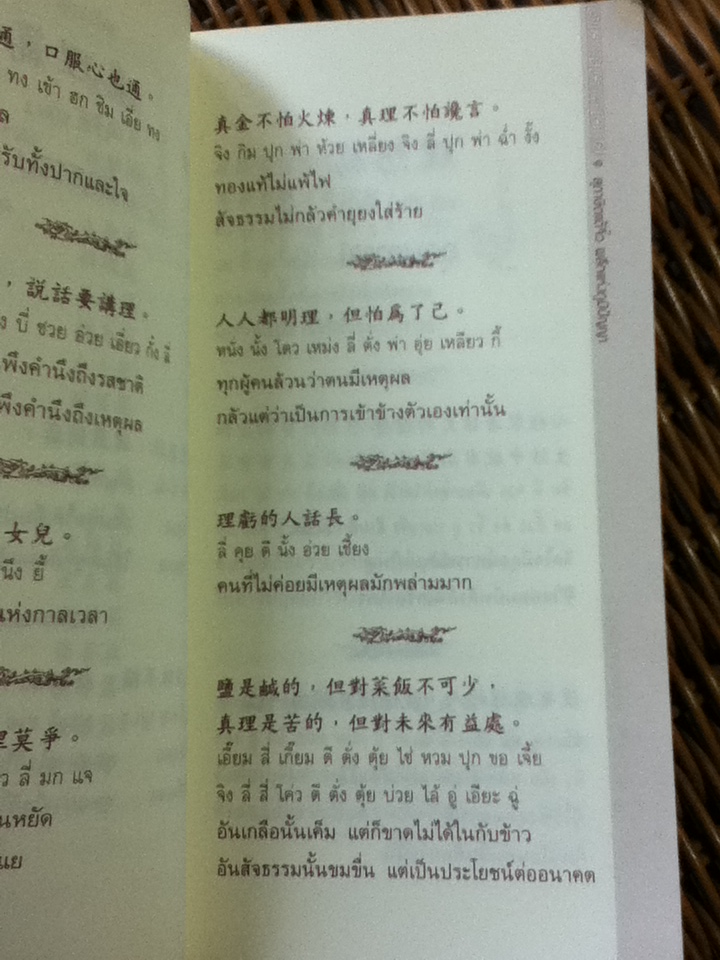 通，口服心也通。
ทง เข้า ฮก ซิม เอี่ย ทง
รับทั้งปากและใจ
，說話要講理。
ปี่ ชวย อ่วย เอี่ยว กั้ง ลี่
พึงคำนึงถึงรสชาติ
พึงคำนึงถึงเหตุผล
女兒。
นึง ยี้
แห่งกาลเวลา
理莫爭。
ลี่ มก แจ
真金不怕火煉，真理不怕讒言。
จิง กิม ปุก พ่า ห้วย เหลี่ยง จิง ลี่ ปุก พ่า ฉ่ำ งั้ง
ทองแท้ไม่แพ้ไฟ
สัจธรรมไม่กลัวคำยุยงใส่ร้าย
人人都明理，但怕爲了己。
หนัง นั้ง โตว เหม่ง ลี่ ตั่ง พ่า อุ่ย เหลียว กี้
ทุกผู้คนล้วนว่าตนมีเหตุผล
กลัวแต่ว่าเป็นการเข้าข้างตัวเองเท่านั้น
理虧的人話長。
ลี่ คุย ตี นั้ง อ่วย เชี้ยง
คนที่ไม่ค่อยมีเหตุผลมักพล่ามมาก
鹽是鹹的，但對菜飯不可少，
真理是苦的，但對未來有益處。
เอี๊ยม สี่ เกี๊ยม ตี ตั่ง ตุ้ย ไช่ หวม ปุก ขอ เจี้ย
จิง ลี่ สี่ โค่ว ตี ตั่ง ตุ้ย บ่วย ไล้ อู่ เอียะ ฉู่
อันเกลือนั้นเค็ม แต่ก็ขาดไม่ได้ในกับข้าว
อันสัจธรรมนั้นขมขื่น แต่เป็นประโยชน์ต่ออนาคต